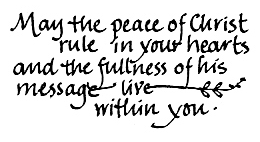 May the peace of Christ
rule in your hearts
and the fullness of his
message live
within you.